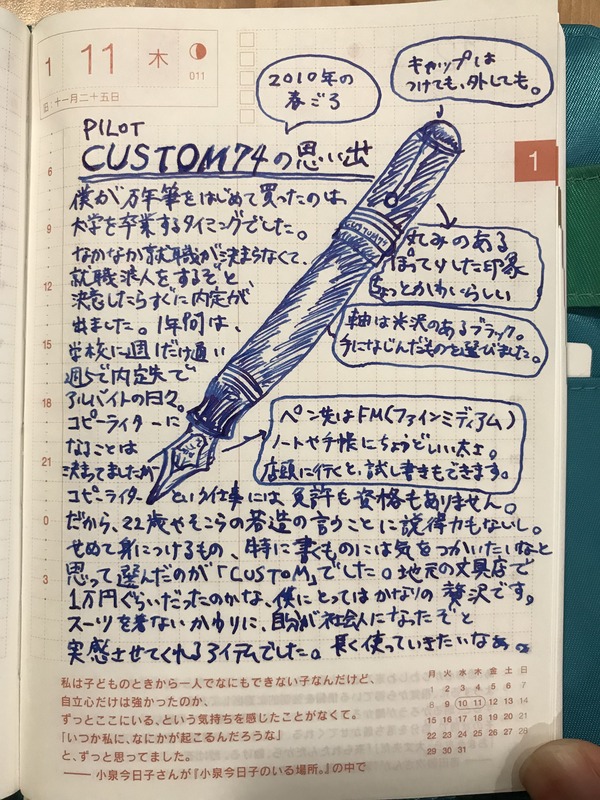 1 11 木
011
旧:十一月二十五日
2010年の
春ごろ
キャップは
つけても、外しても。
PILOT
CUSTOM74の思い出
1
僕が万年筆をはじめて買ったのは、
大学を卒業するタイミングでした。
なかなか就職が決まらなくて、
就職浪人をするぞと
決意したらすぐに内定が
出ました。1年間は、
学校に週1だけ通い
週5で内定先で
アルバイトの日々。
コピーライターに
なることは
決まってましたが
コピーライターという仕事には、免許も資格もありません。
だから、22歳やそこらの若造の言うことに説得力もないし。
せめて身につけるもの、特に書くものには気をつかいたいなと
思って選んだのが「CUSTOM」でした。地元の文具店で
1万円ぐらいだったのかな、僕にとってはかなりの贅沢です。
スーツを着ないかわりに、自分が社会人になったぞと
実感させてくれるアイテムでした。長く使っていきたいなぁ。
CUSTOM74
丸みのある
ぽってりした印象
ちょっとかわいらしい
軸は光沢のあるブラック。
手になじんだものを選びました。
ペン先はFM(ファインミディアム)
ノートや手帳にちょうどいい太さ。
店頭に行くと、試し書きもできます。
6
9
12
15
18
21
0
3
私は子どものときから一人でなにもできない子なんだけど、
自立心だけは強かったのか、
ずっとここにいる、という気持ちを感じたことがなくて。
「いつか私に、なにかが起こるんだろうな」
と、ずっと思ってました。
── 小泉今日子さんが『小泉今日子のいる場所。』の中で
月 火 水 木 金 土 日
1 2 3 4 5 6 7
8 9 10 11 12 13 14
15 16 17 18 19 20 21
22 23 24 25 26 27 28
29 30 31